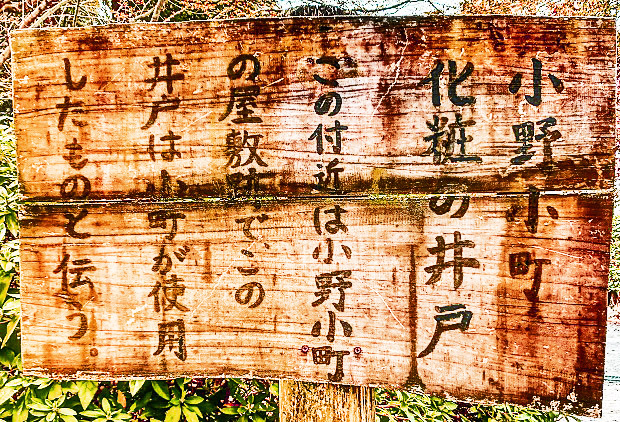 小野小町
化粧の井戸
この付近は小野小町
の屋敷跡でこの
井戸は小町が使用
したものと伝う。